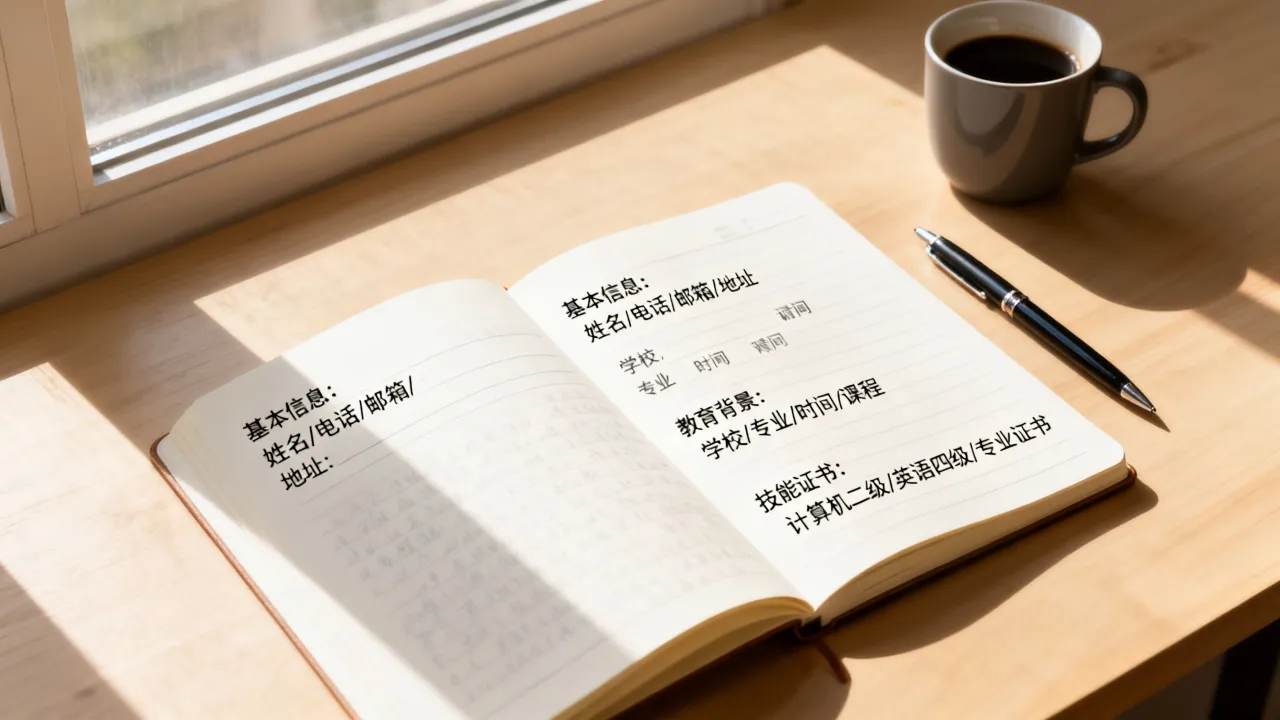 基本信息：
姓名/电话/邮箱/
地址：
基本信息：
姓名/电话/邮箱/地址
学校，
专业 时间
教育背景：
学校/专业/时间/课程
技能证书：
计算机二级/英语四级/专业证书